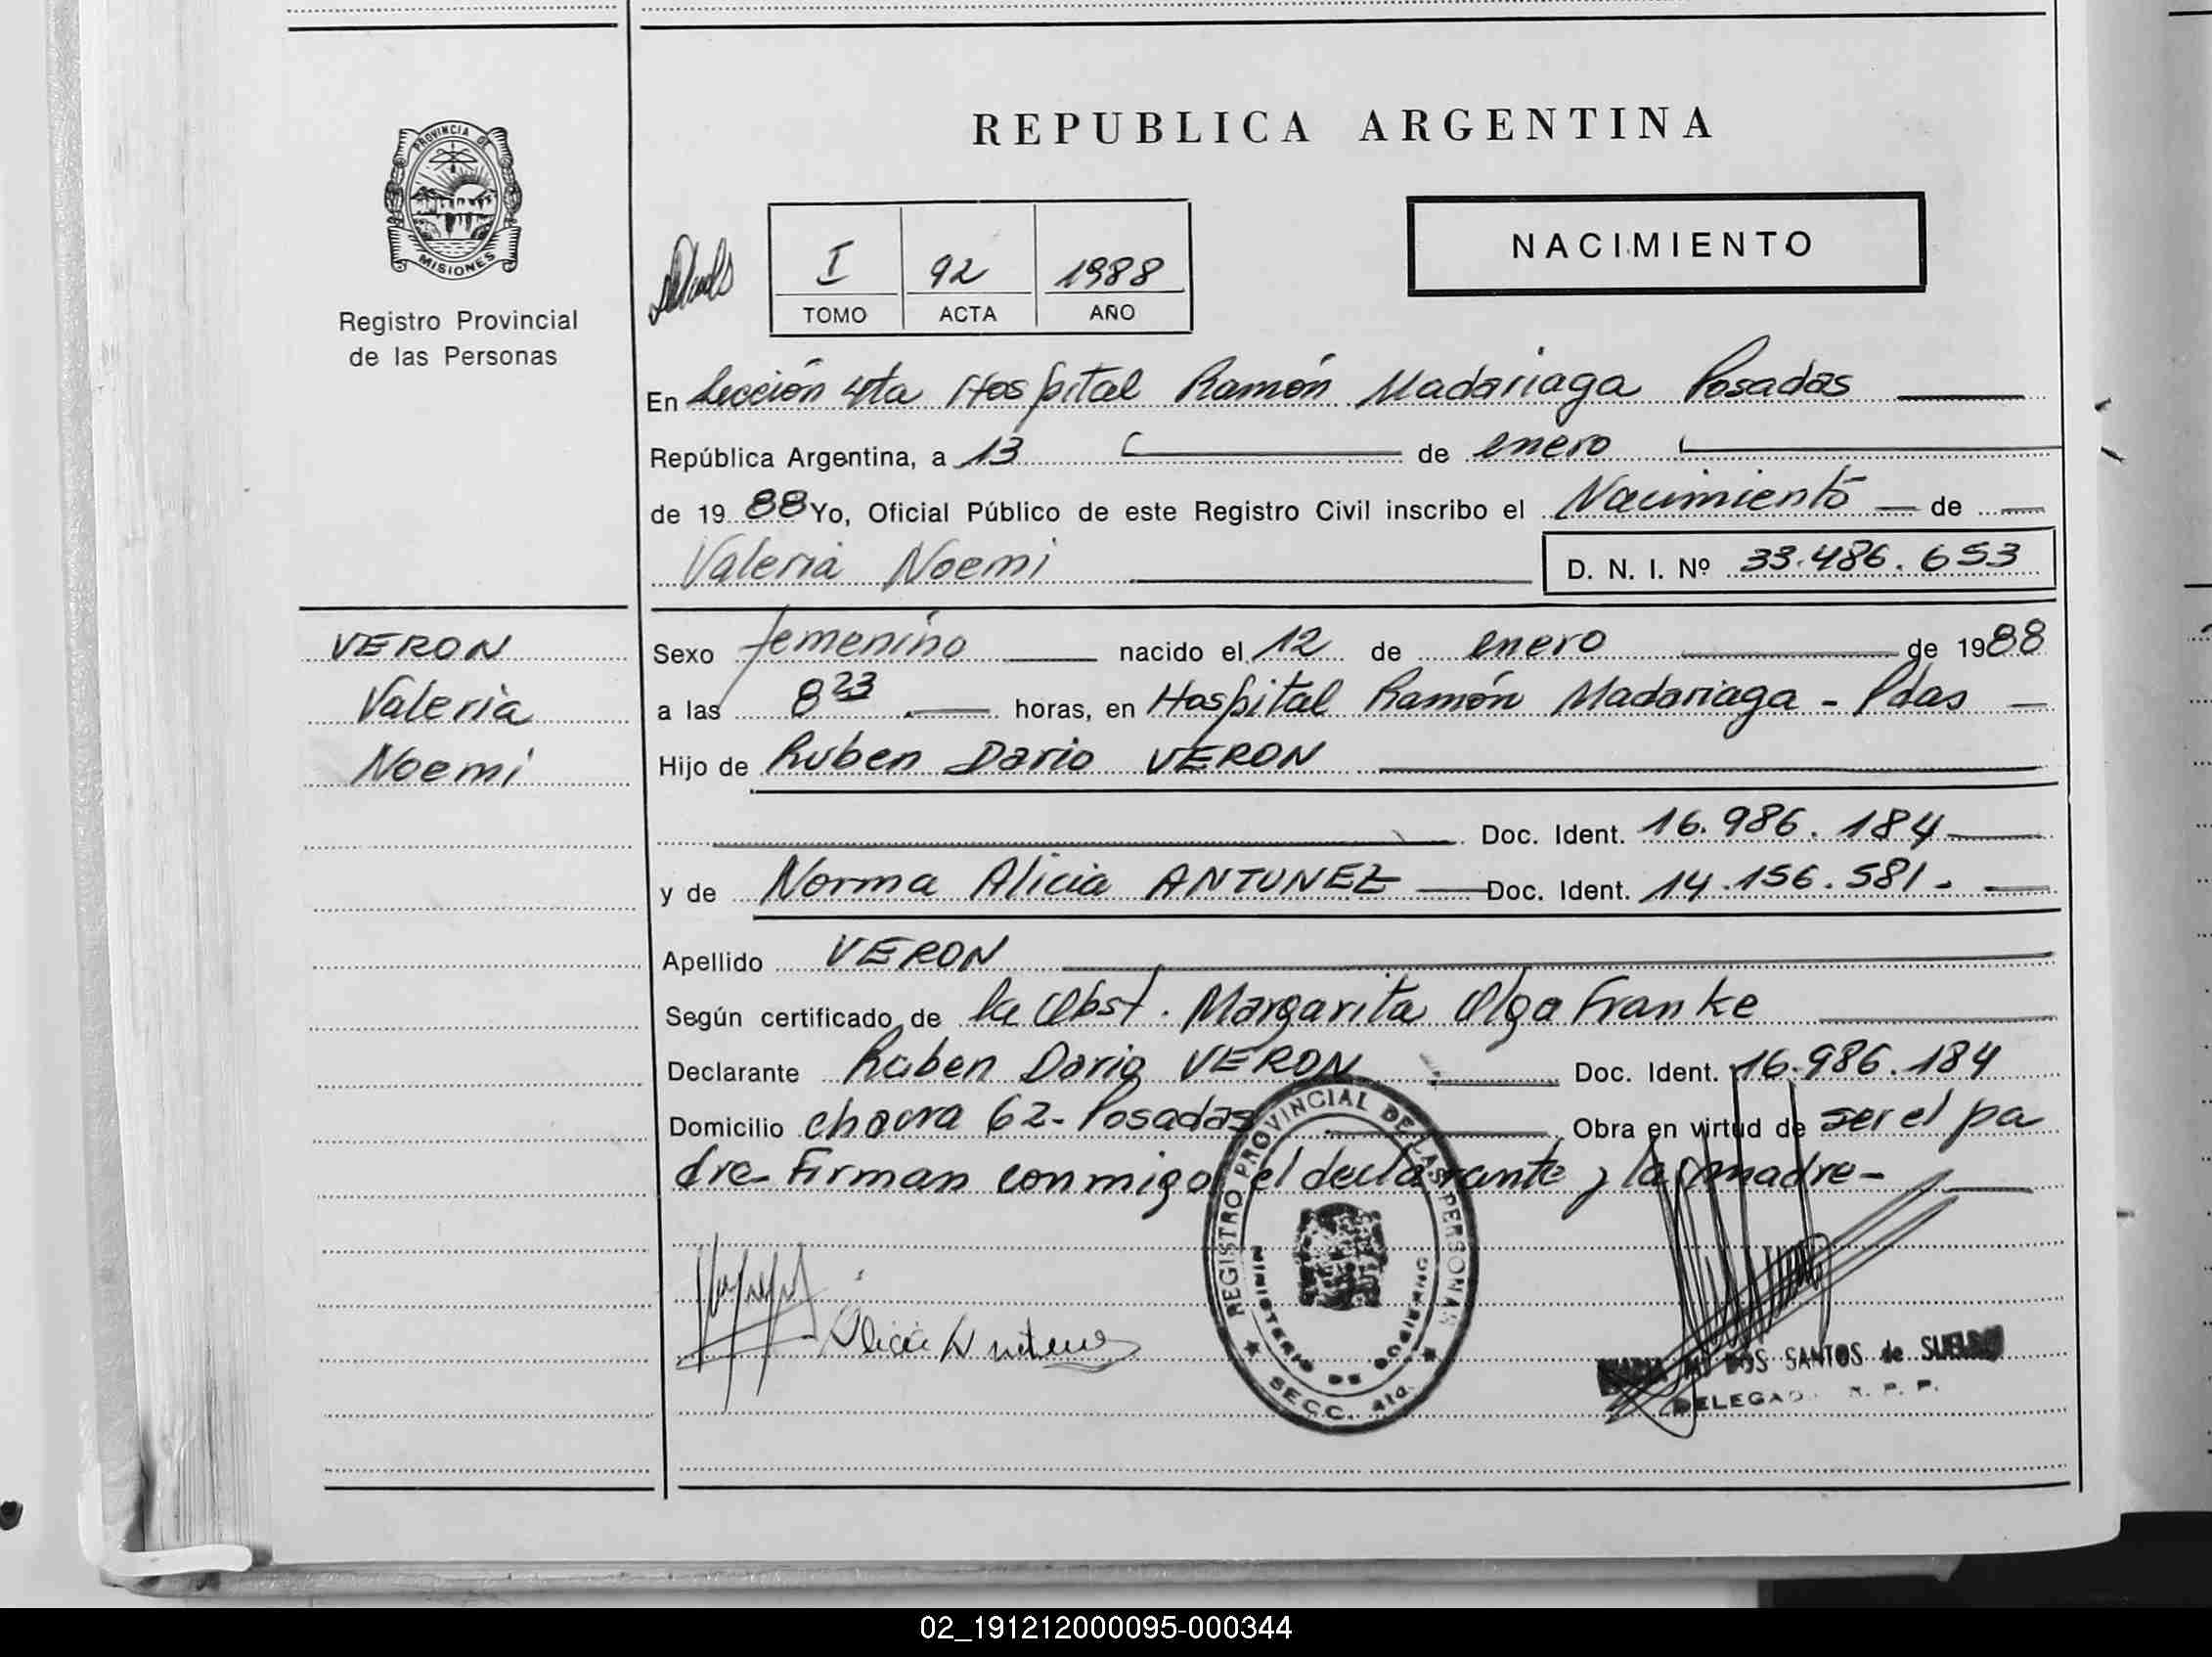 PROVINCIA DE
MISIONES
Registro Provincial
de las Personas
VERON
Valeria
Noemi
REPUBLICA ARGENTINA
I 92 1988
TOMO ACTA AÑO
NACIMIENTO
En Sección 4ta Hospital Ramón Madariaga Posadas
República Argentina, a 13 de enero
de 1988 Yo, Oficial Público de este Registro Civil inscribo el Nacimiento de
Valeria Noemi D. N. I. Nº 33.486.653
Sexo femenino nacido el 12 de enero de 1988
a las 8 23 horas, en Hospital Ramón Madariaga - Pdas
Hijo de Ruben Dario VERON
Doc. Ident. 16.986.184
y de Norma Alicia ANTUNEZ Doc. Ident. 14.156.581.
Apellido VERON
Según certificado de la Obst. Margarita Olga Franke
Declarante Ruben Dario VERON Doc. Ident. 16.986.184
Domicilio chacra 62- Posadas Obra en virtud de ser el pa
dre- Firman conmigo el declarante y la madre-
REGISTRO PROVINCIAL DE LAS PERSONAS
MINISTERIO DE GOBIERNO
SECC. 4ta.
Alicia Antunez
DOS SANTOS de
DELEGADA R. P. P.
02_191212000095-000344